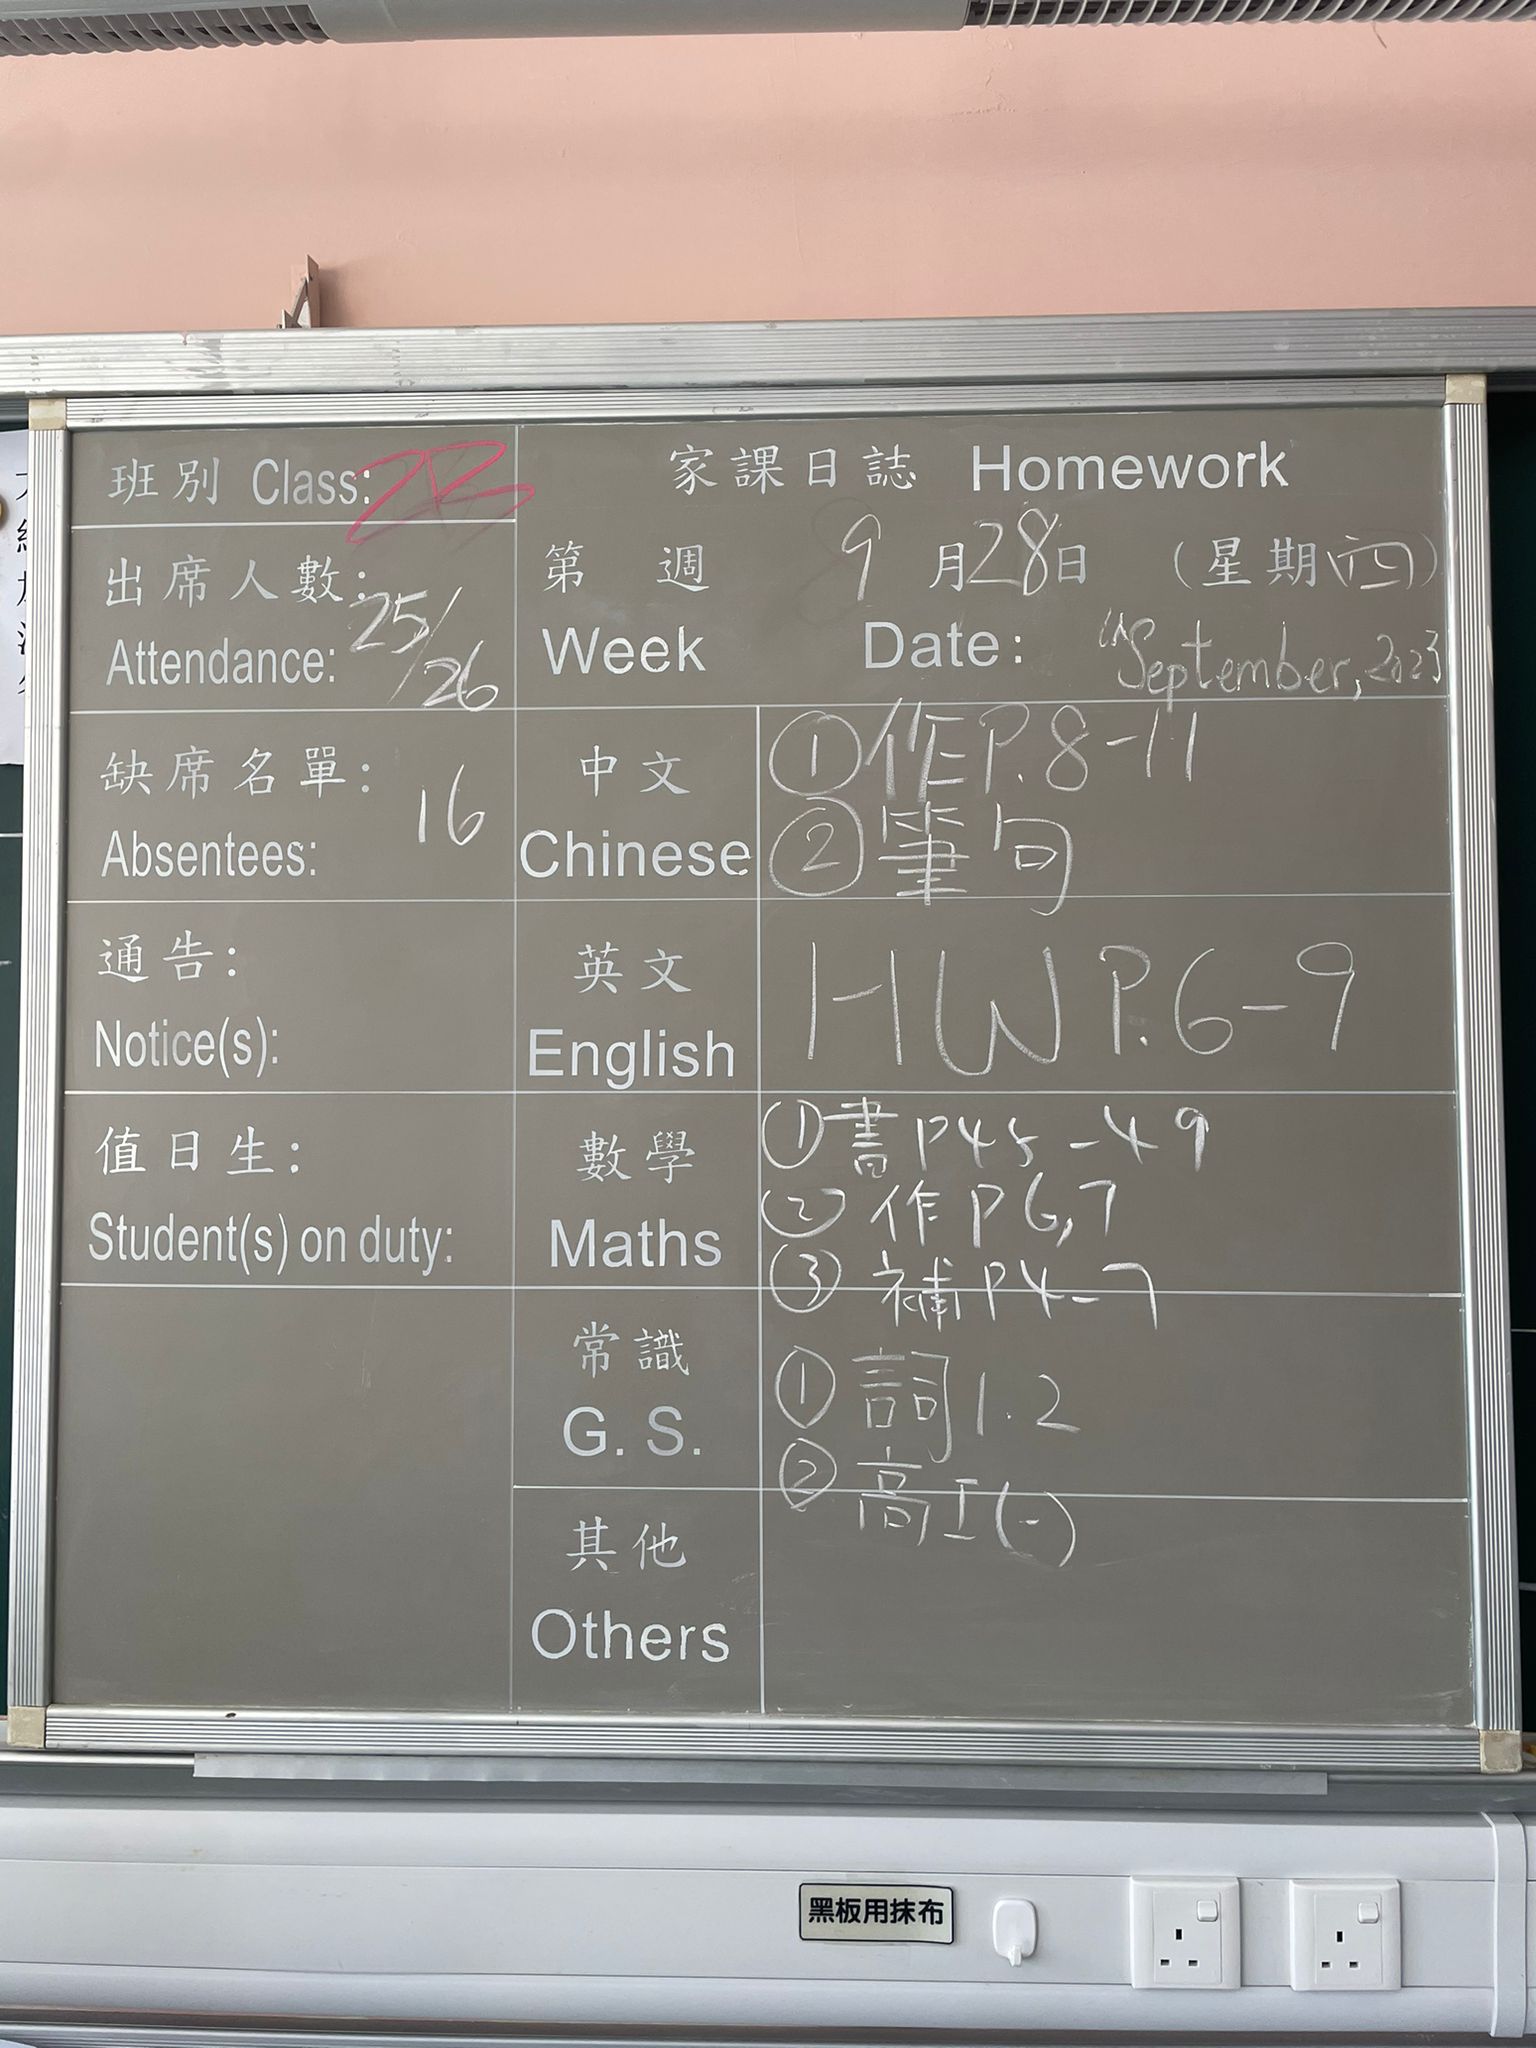 班別 Class:
家課日誌 Homework
出席人數: 25/26
Attendance:
第 週 9月28日 (星期四)
Week Date: September, 2023
缺席名單: 16
Absentees:
中文
Chinese
①作P.8-11
②筆句
通告:
Notice(s):
英文
English
HW P.6-9
值日生:
Student(s) on duty:
數學
Maths
①書P45-49
②作P6,7
③補P4-7
常識
G. S.
①詞1.2
②高I(一)
其他
Others
黑板用抹布